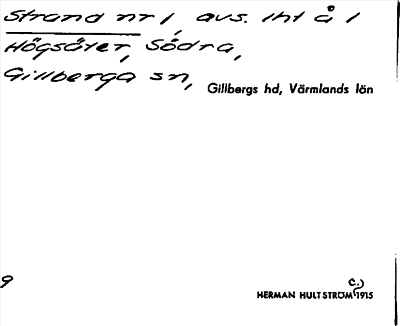 Strand nr 1, avs. 1ht å 1
Högsäter, Södra,
Gillberga sn,
Gillbergs hd, Värmlands län
9
c.)
HERMAN HULTSTRÖM 1915